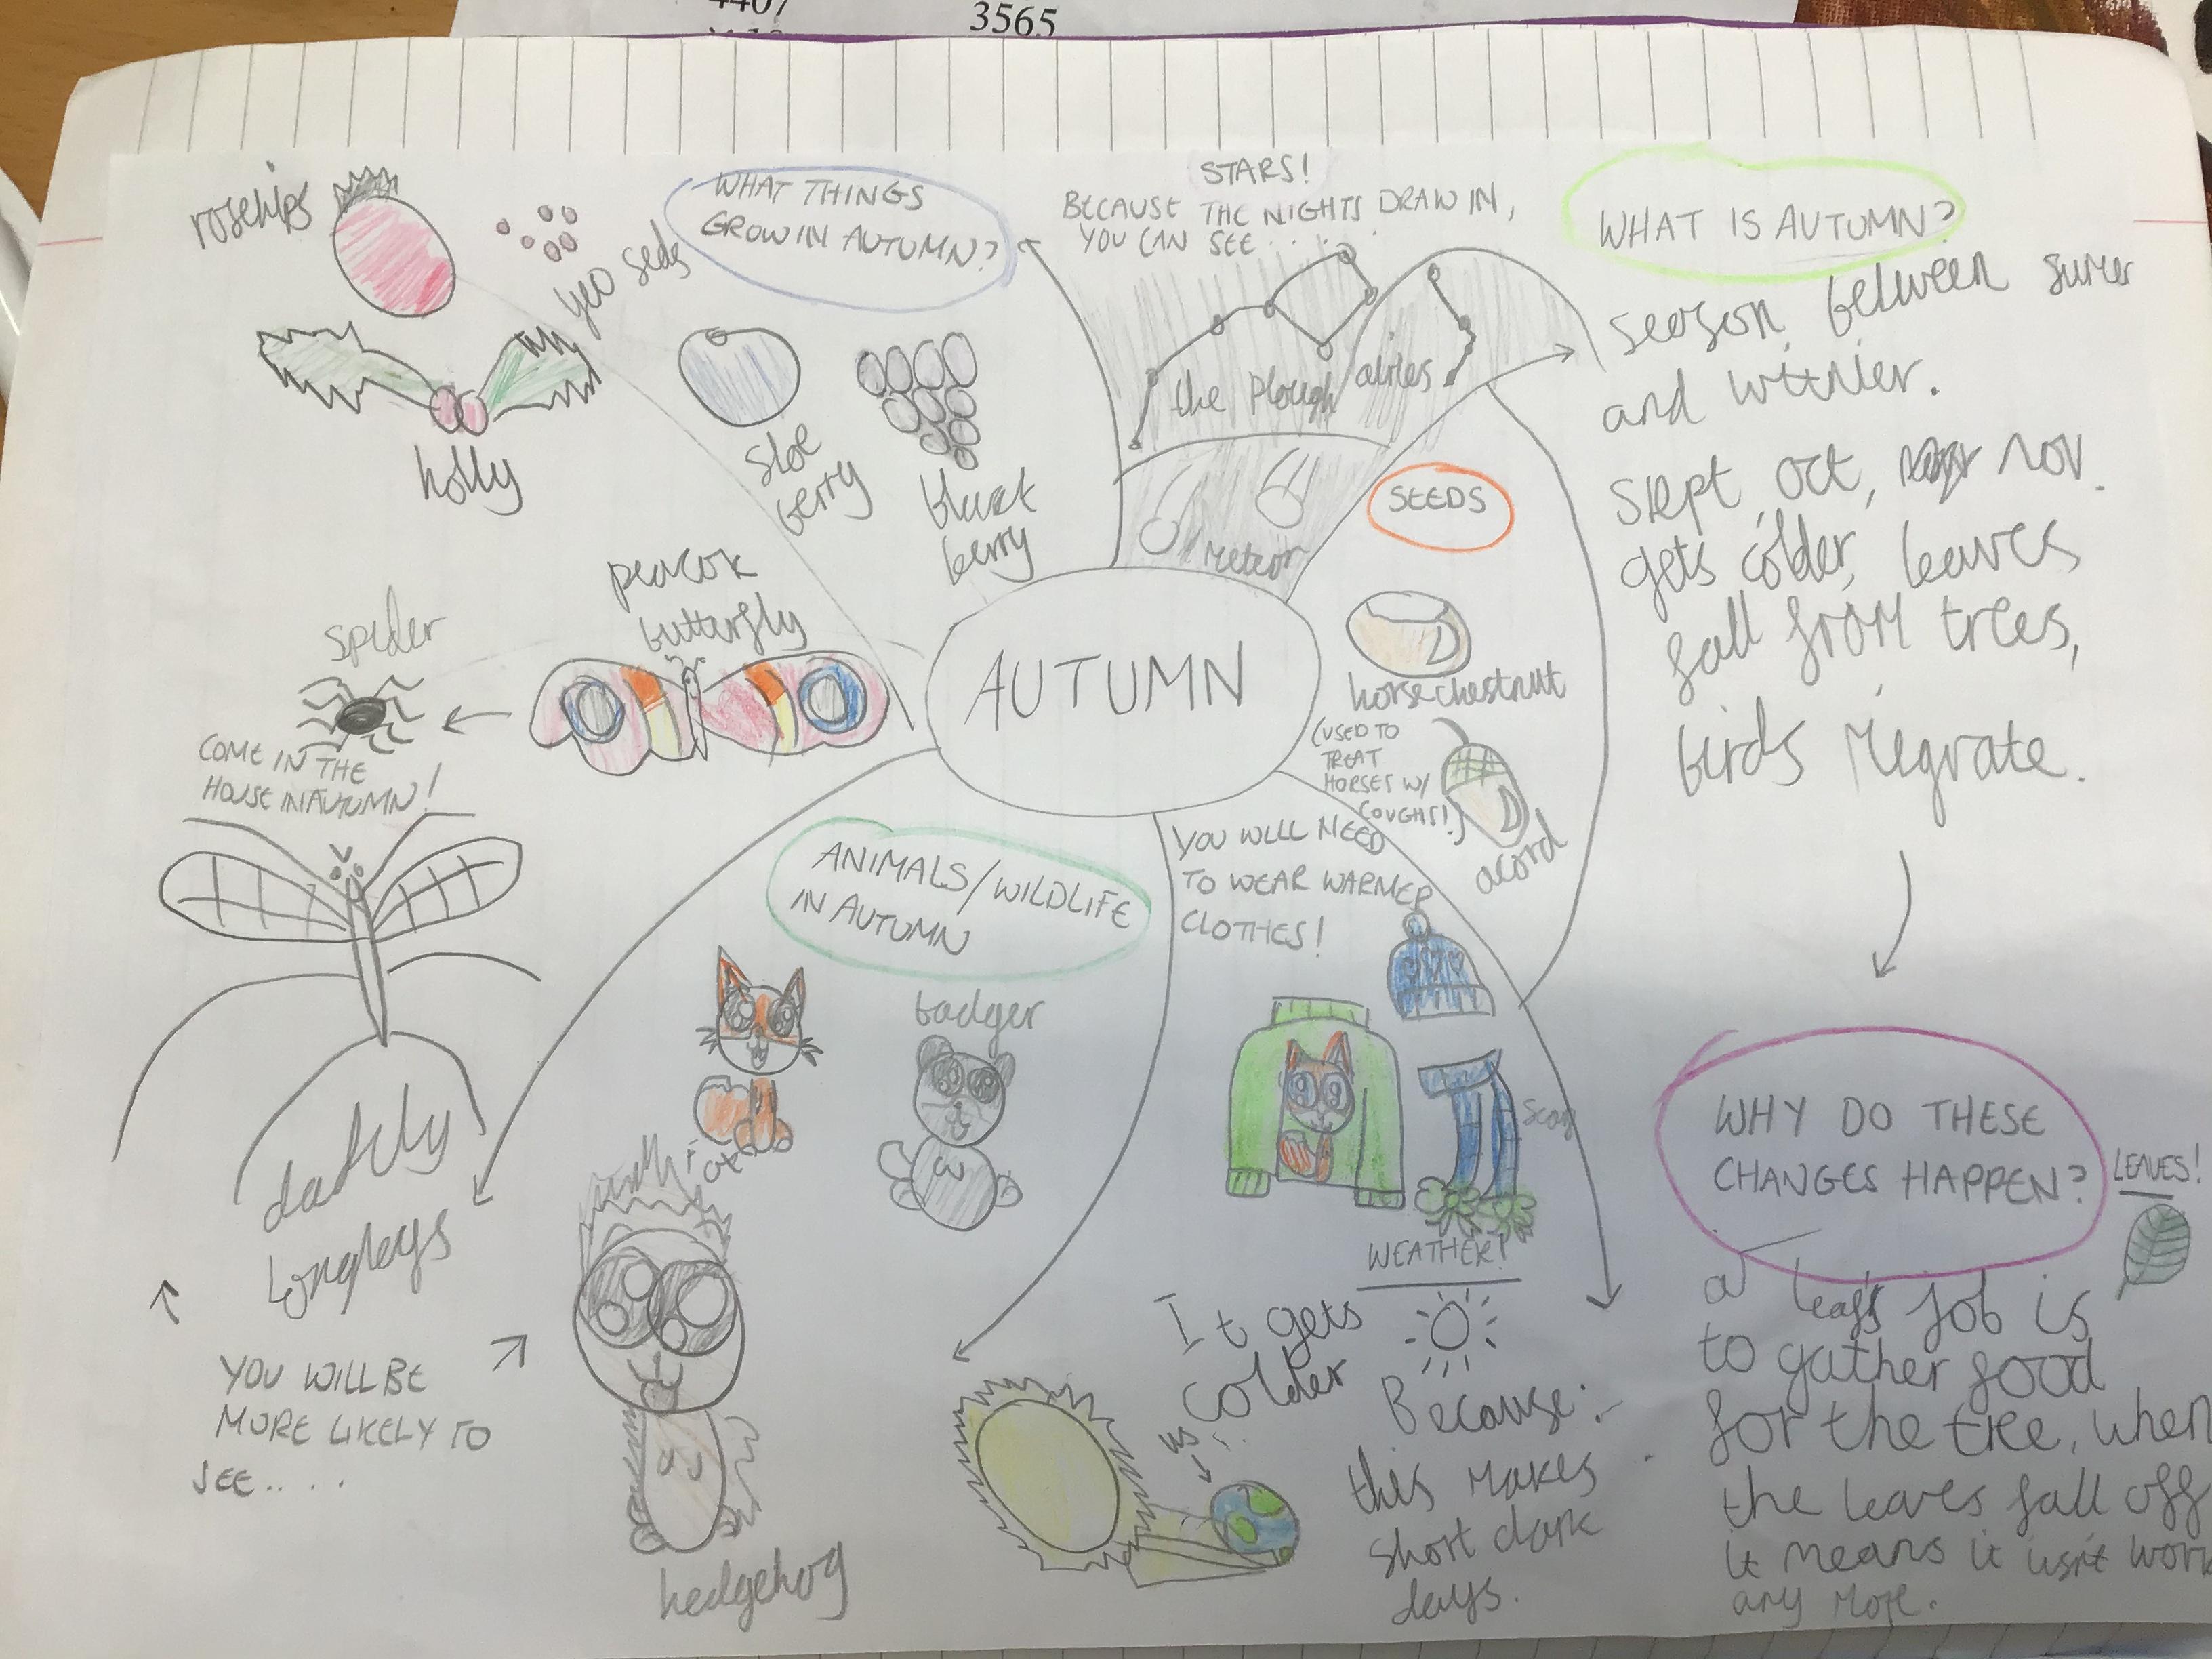 4407
3565
rosehips
yeo seds
WHAT THINGS
GROW IN AUTUMN?
STARS!
BECAUSE THE NIGHTS DRAW IN,
YOU CAN SEE.....
WHAT IS AUTUMN?
season between sumer
and wittnier.
sept, oct, nov.
gets colder, leaves
fall from trees,
birds migrate.
holly
sloe
berry
black
berry
the Plough
airies
Meteor
SEEDS
horsechestnut
(USED TO
TREAT
HORSES W/
COUGHS!)
acord
peacok
butterfly
spider
COME IN THE
HOUSE IN AUTUMN!
AUTUMN
daddy
longlegs
YOU WILL BE
MORE LIKELY TO
SEE.....
ANIMALS/WILDLIFE
IN AUTUMN
badger
hedgehog
YOU WILL NEED
TO WEAR WARMER
CLOTHES!
WEATHER!
It gets
colder
Because:-
us
this makes
short dark
days.
WHY DO THESE
CHANGES HAPPEN?
LEAVES!
a leafs job is
to gather food
for the tree, when
the leaves fall off
it means it isn't work
any more.